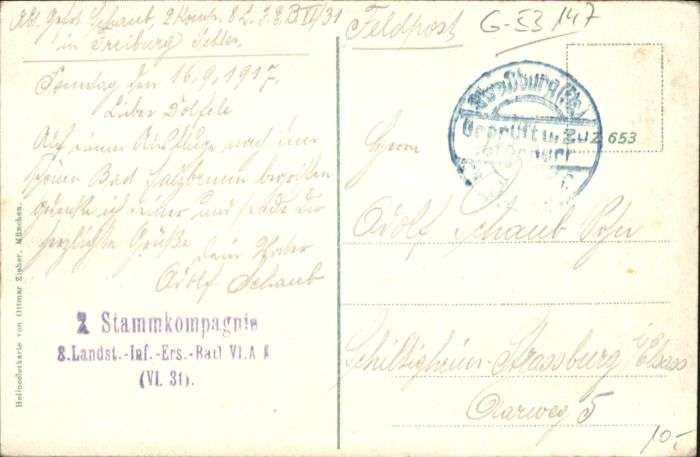 Abs. Gefr. Schaub, 2 Komp. 8 L. J. E. B VI/31
in Freiburg Schles.
Sonntag den 16.9.1917.
Lieber Dölfele
Auf einem Ausfluge nach dem
schönen Bad Salzbrunn begriffen
gedenke ich einer und sende dir
herzlichste Grüße
dein Vater
Adolf Schaub
2 Stammkompagnie
8.Landst.-Inf.-Ers.-Batl VI.A K
(VI. 31).
Helicocolorkarte von Ottmar Zieher, München.
Feldpost
G-53 147
Straßburg (Els.)
Geprüft u. zu
befördern
Z 653
Herrn
Adolf Schaub Sohn
Schiltigheim-Strassburg i/Elsass
Aarweg 5
10,-